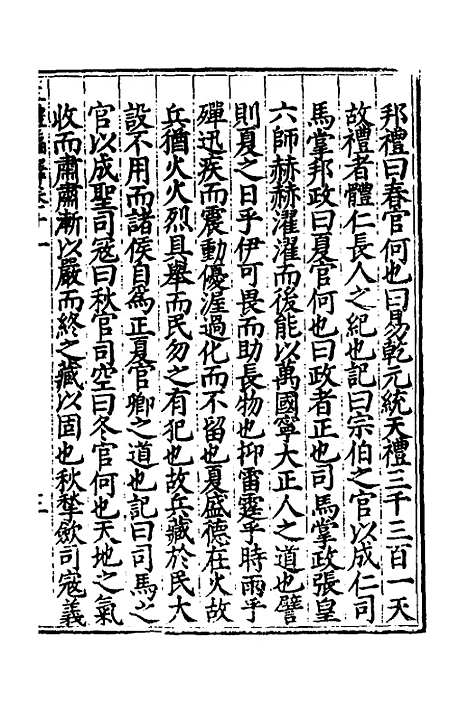 邦禮曰春官何也曰易乾元統天禮三千三百一天
故禮者體仁長人之紀也記曰宗伯之官以成仁司
馬掌邦政曰夏官何也曰政者正也司馬掌政張皇
六師赫赫濯濯而後能以萬國寧大正人之道也譬
則夏之日乎伊可畏而助長物也抑雷霆乎時雨乎
殫迅疾而震動優渥過化而不留也夏盛德在火故
兵猶火火烈具舉而民勿之有犯也故兵藏於民大
設不用而諸侯自爲正夏官卿之道也記曰司馬之
官以成聖司寇曰秋官司空曰冬官何也天地之氣
收而肅肅漸以嚴而終之藏以固也秋揫斂司寇義
三禮編繹卷十一
三